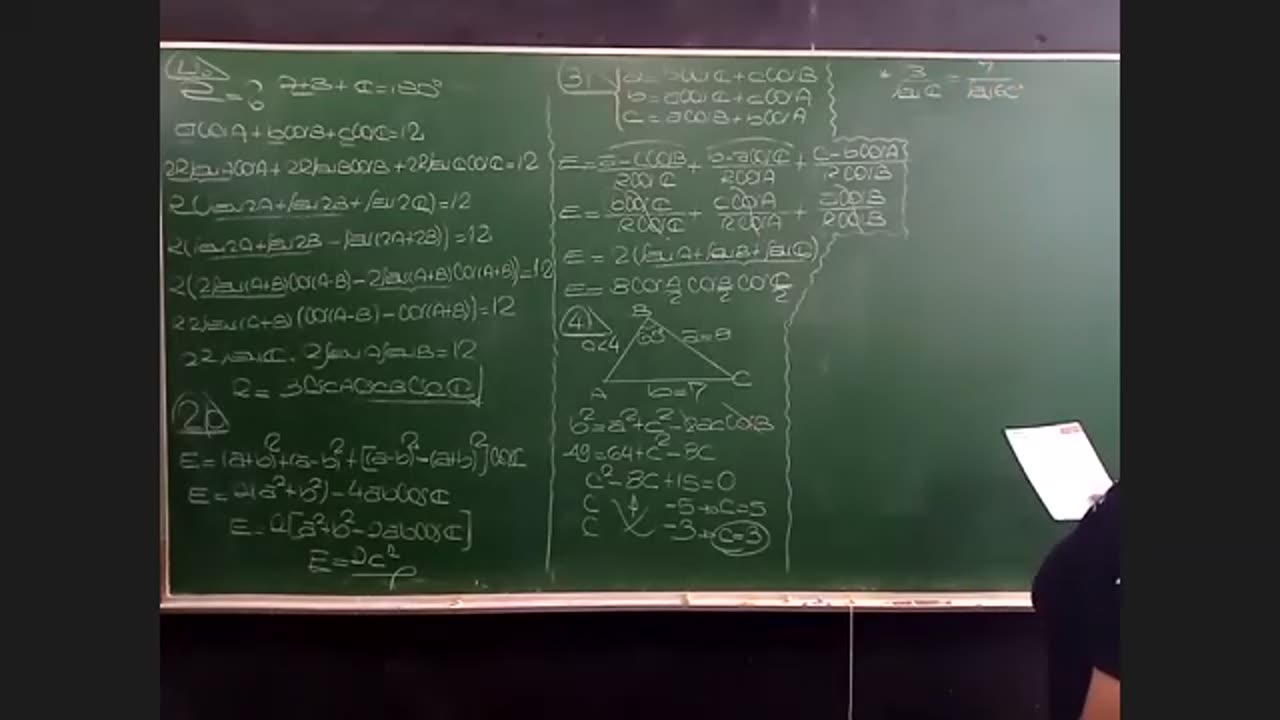 1)
R = ? A+B+C=180°
aCosA+bCosB+cCosC=12
2RsenACosA+2RsenBCosB+2RsenCCosC=12
R(sen2A+sen2B+sen2C)=12
R(sen2A+sen2B-sen(2A+2B))=12
R(2sen(A+B)Cos(A-B)-2sen(A+B)Cos(A+B))=12
2Rsen(A+B)(Cos(A-B)-Cos(A+B))=12
2RsenC.2senAsenB=12
R=3CscACscBCscC
2)
E=(a+b)²+(a-b)²+[(a-b)²-(a+b)²]CosC
E=2(a²+b²)-4abCosC
E=2[a²+b²-2abCosC]
E=2c²
3)
a=bCosC+cCosB
b=aCosC+cCosA
c=aCosB+bCosA
E=a-cCosB/RCosC+b-aCosC/RCosA+c-bCosA/RCosB
E=bCosC/RCosC+cCosA/RCosA+aCosB/RCosB
E=2(senA+senB+senC)
E=8CosA/2CosB/2CosC/2
4)
B
c<4 60° a=8
A C
b=7
b²=a²+c²-2acCosB
49=64+c²-8c
c²-8c+15=0
c -5→c=5
c -3→c=3
* 3/senC=7/sen60°